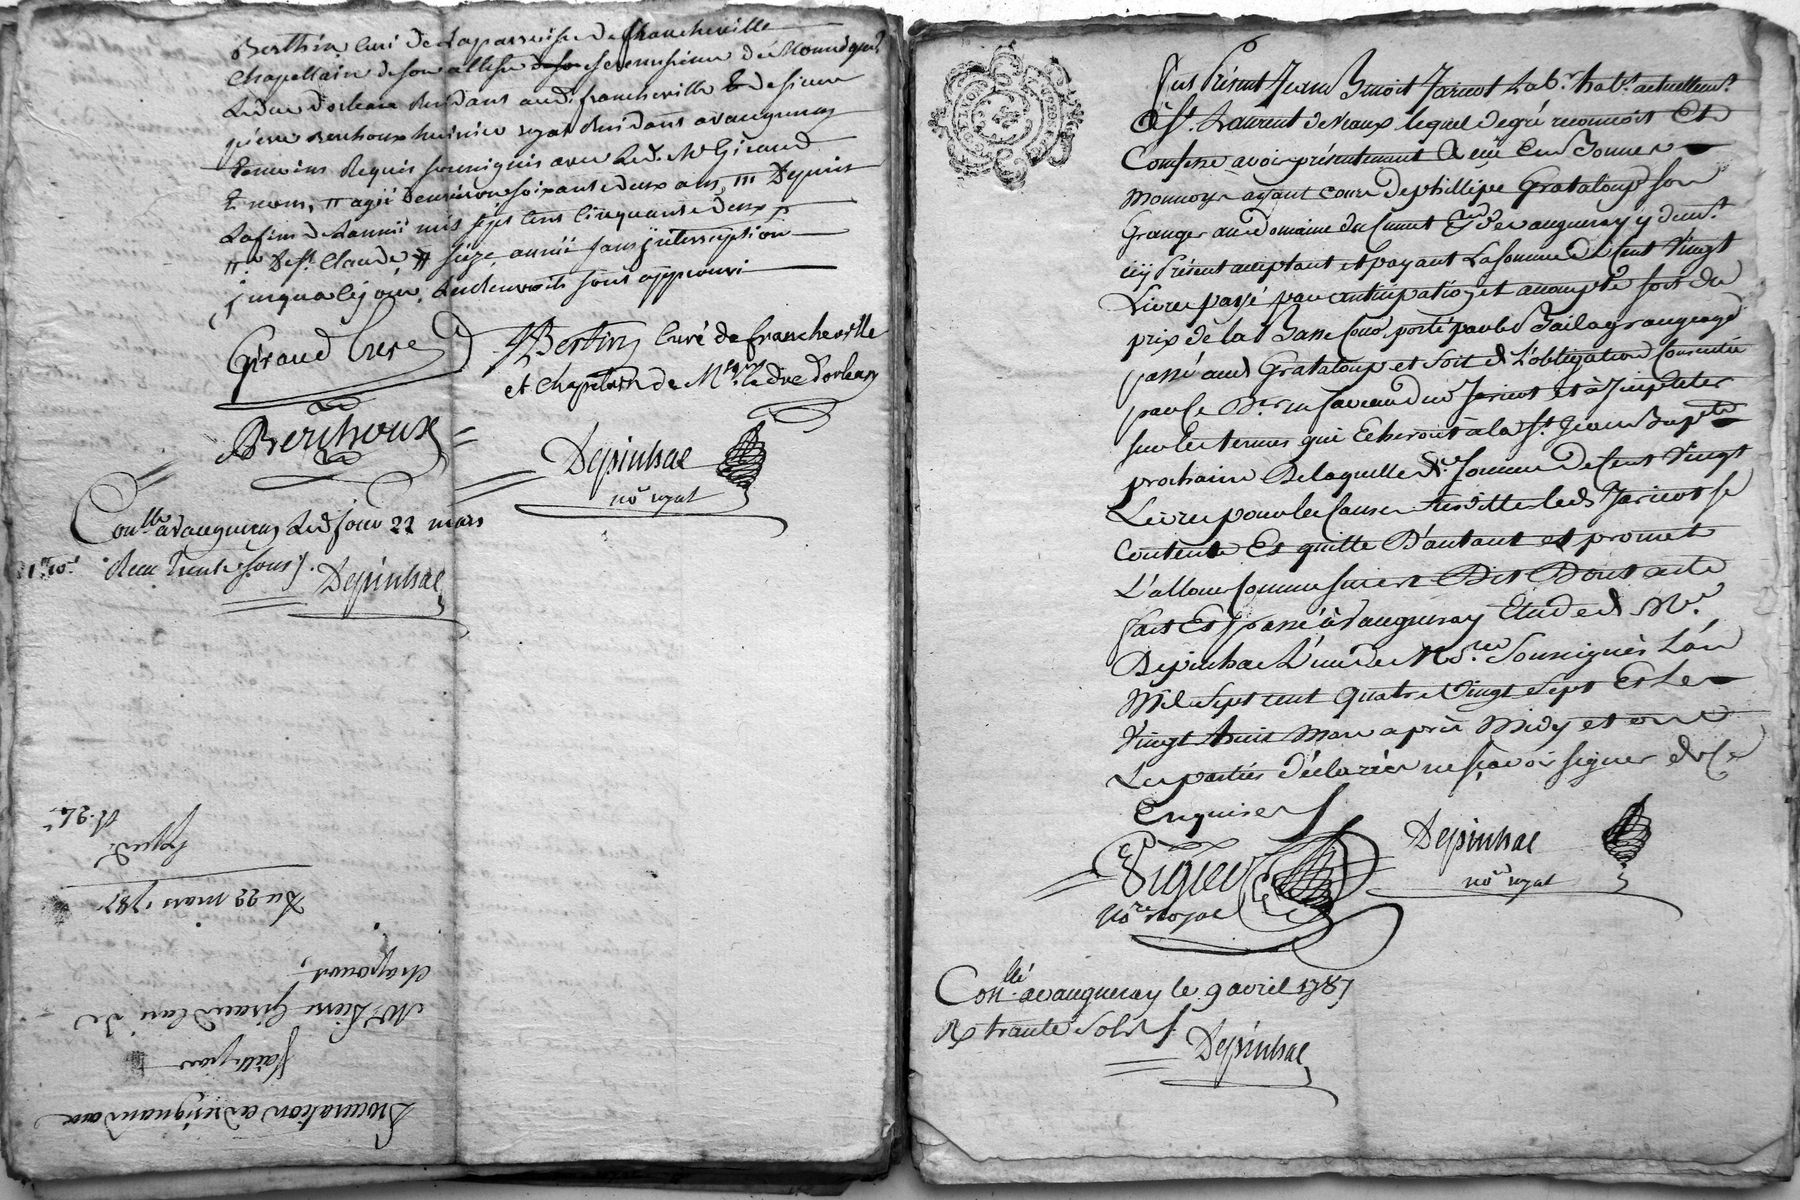 Berthin Curé de La parroisse de francheville
Chapellain de son altesse serenissime de Monseigneur
Le duc dorleans Residant aud. francheville & de sieur
pierre Berthoux huissier royal Residant a vaugneray
temoins Requis soussignés avec Led. Mre Giraud
agé denviron soixante deux ans, /// Depuis
La fin de Lannée mil sept cens cinquante deux
De St. Claude, # seize année sans interruption
jusqua ce jour, sont approuvé
Giraud Cure
JBertin Curé de francheville
et chapelain de Mgr. Le duc d'orleans
Berthoux
Depinhac
nore royal
Conllé a vaugneray Led. jour 22 mars
1ll 10s Recu trente sous /. Depinhac
Procuration ad resignandum
faitte par
Mre Pierre Giraud Curé de
chaponost,
Du 22 mars 1787
Exped.
Fut Présent Jean Benoit Jaricot Labr. habt. actuellemt.
à St. Laurent de Vaux lequel de gré reconnoit Et
Confesse avoir présentement Recu En Bonnes
Monnoye ayant cours de phillipe Grataloup son
Granger au Domaine du Cunet psse de vaugneray y demt.
icy Présent acceptant et payant La somme de Cent Vingt
Livres payé par anticipation et acompte soit du
prix de la Basse Cour porté par le Bail a grangeage
passé aud. Grataloup et soit de L'obligation Consentie
par le Dr. en faveur dud. Jaricot et à Imputer
sur les termes qui Echeront à la St. Jean Bapte
prochaine De laquelle de. somme de Cent Vingt
Livres pour les Causes susdittes led. Jaricot se
Contente Et quitte D'autant et promet
L'allouer Comme sus est Dit Dont acte
fait Et passé à Vaugneray Etude de Me.
Depinhac L'un des Nores. Soussignés L'an
Mil Sept cent quatre Vingt Sept Et Le
Vingt huit Mars après Midy et ont
Les parties déclarées ne sçavoir signer de ce
Enquises /
Vigier
nore Royal
Depinhac
nore royal
Conllé. a vaugneray le 9 avril 1787
R trante Sols /.
Depinhac